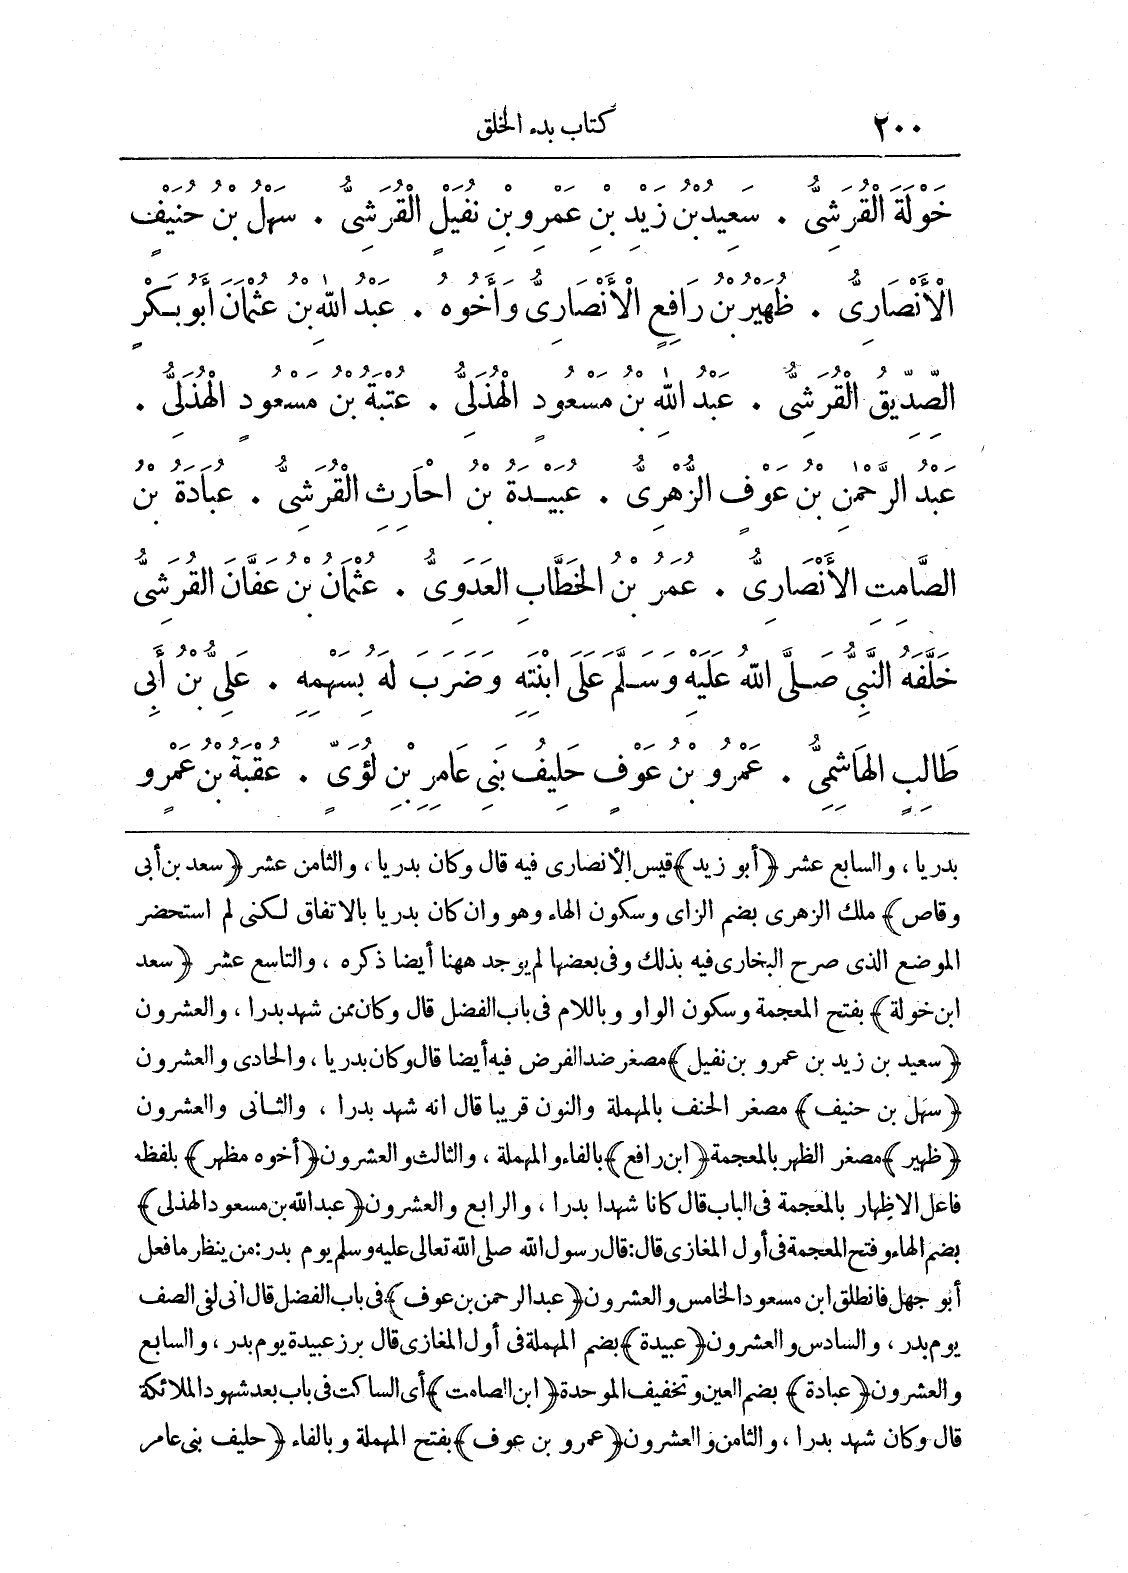 ٢٠٠ كتاب بدء الخلق
خَوْلَةَ الْقُرَشِىُّ . سَعِيدُ بْنُ زَيْدِ بْنِ عَمْرِو بْنِ نُفَيْلٍ الْقُرَشِىُّ . سَهْلُ بْنُ حُنَيْفٍ
الْأَنْصَارِىُّ . ظُهَيْرُ بْنُ رَافِعٍ الْأَنْصَارِىُّ وَأَخُوهُ . عَبْدُ اللهِ بْنُ عُثْمَانَ أَبُو بَكْرٍ
الصِّدِّيقُ الْقُرَشِىُّ . عَبْدُ اللهِ بْنُ مَسْعُودٍ الْهُذَلِىُّ . عُتْبَةُ بْنُ مَسْعُودٍ الْهُذَلِىُّ .
عَبْدُ الرَّحْمٰنِ بْنُ عَوْفٍ الزُّهْرِىُّ . عُبَيْدَةُ بْنُ الْحَارِثِ الْقُرَشِىُّ . عُبَادَةُ بْنُ
الصَّامِتِ الْأَنْصَارِىُّ . عُمَرُ بْنُ الْخَطَّابِ الْعَدَوِىُّ . عُثْمَانُ بْنُ عَفَّانَ الْقُرَشِىُّ
خَلَّفَهُ النَّبِىُّ صَلَّى اللهُ عَلَيْهِ وَسَلَّمَ عَلَى ابْنَتِهِ وَضَرَبَ لَهُ بِسَهْمِهِ . عَلِىُّ بْنُ أَبِى
طَالِبٍ الْهَاشِمِىُّ . عَمْرُو بْنُ عَوْفٍ حَلِيفُ بَنِى عَامِرِ بْنِ لُؤَىٍّ . عُقْبَةُ بْنُ عَمْرٍو
بدريا ، والسابع عشر ﴿أبو زيد﴾ قيس الأنصارى فيه قال وكان بدريا ، والثامن عشر ﴿سعد بن أبى
وقاص﴾ ملك الزهرى بضم الزاى وسكون الهاء وهو وان كان بدريا بالاتفاق لكنى لم استحضر
الموضع الذى صرح البخارى فيه بذلك وفى بعضها لم يوجد ههنا أيضا ذكره ، والتاسع عشر ﴿سعد
ابن خولة﴾ بفتح المعجمة وسكون الواو وباللام فى باب الفضل قال وكان ممن شهد بدرا ، والعشرون
﴿سعيد بن زيد بن عمرو بن نفيل﴾ مصغر ضد الفرض فيه أيضا قال وكان بدريا ، والحادى والعشرون
﴿سهل بن حنيف﴾ مصغر الحنف بالمهملة والنون قريبا قال انه شهد بدرا ، والثانى والعشرون
﴿ظهير﴾ مصغر الظهر بالمعجمة ﴿ابن رافع﴾ بالفاء والمهملة ، والثالث والعشرون ﴿أخوه مظهر﴾ بلفظ
فاعل الاظهار بالمعجمة فى الباب قال كانا شهدا بدرا ، والرابع والعشرون ﴿عبدالله بن مسعود الهذلى﴾
بضم الهاء وفتح المعجمة فى أول المغازى قال: قال رسول الله صلى الله تعالى عليه وسلم يوم بدر: من ينظر ما فعل
أبو جهل فانطلق ابن مسعود الخامس والعشرون ﴿عبد الرحمن بن عوف﴾ فى باب الفضل قال انى لفى الصف
يوم بدر ، والسادس والعشرون ﴿عبيدة﴾ بضم المهملة فى أول المغازى قال برز عبيدة يوم بدر ، والسابع
والعشرون ﴿عبادة﴾ بضم العين وتخفيف الموحدة ﴿ابن الصامت﴾ أى الساكت فى باب بعد شهود الملائكة
قال وكان شهد بدرا ، والثامن والعشرون ﴿عمرو بن عوف﴾ بفتح المهملة وبالفاء ﴿حليف بنى عامر